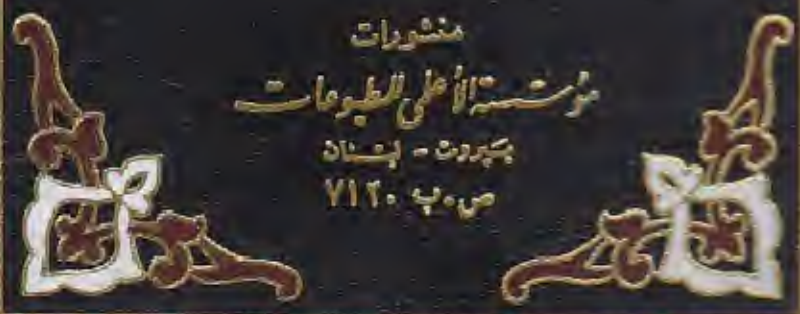 منشورات
مؤسسة الأعلمي للمطبوعات
بيروت - لبنان
ص.ب ٧١٢٠